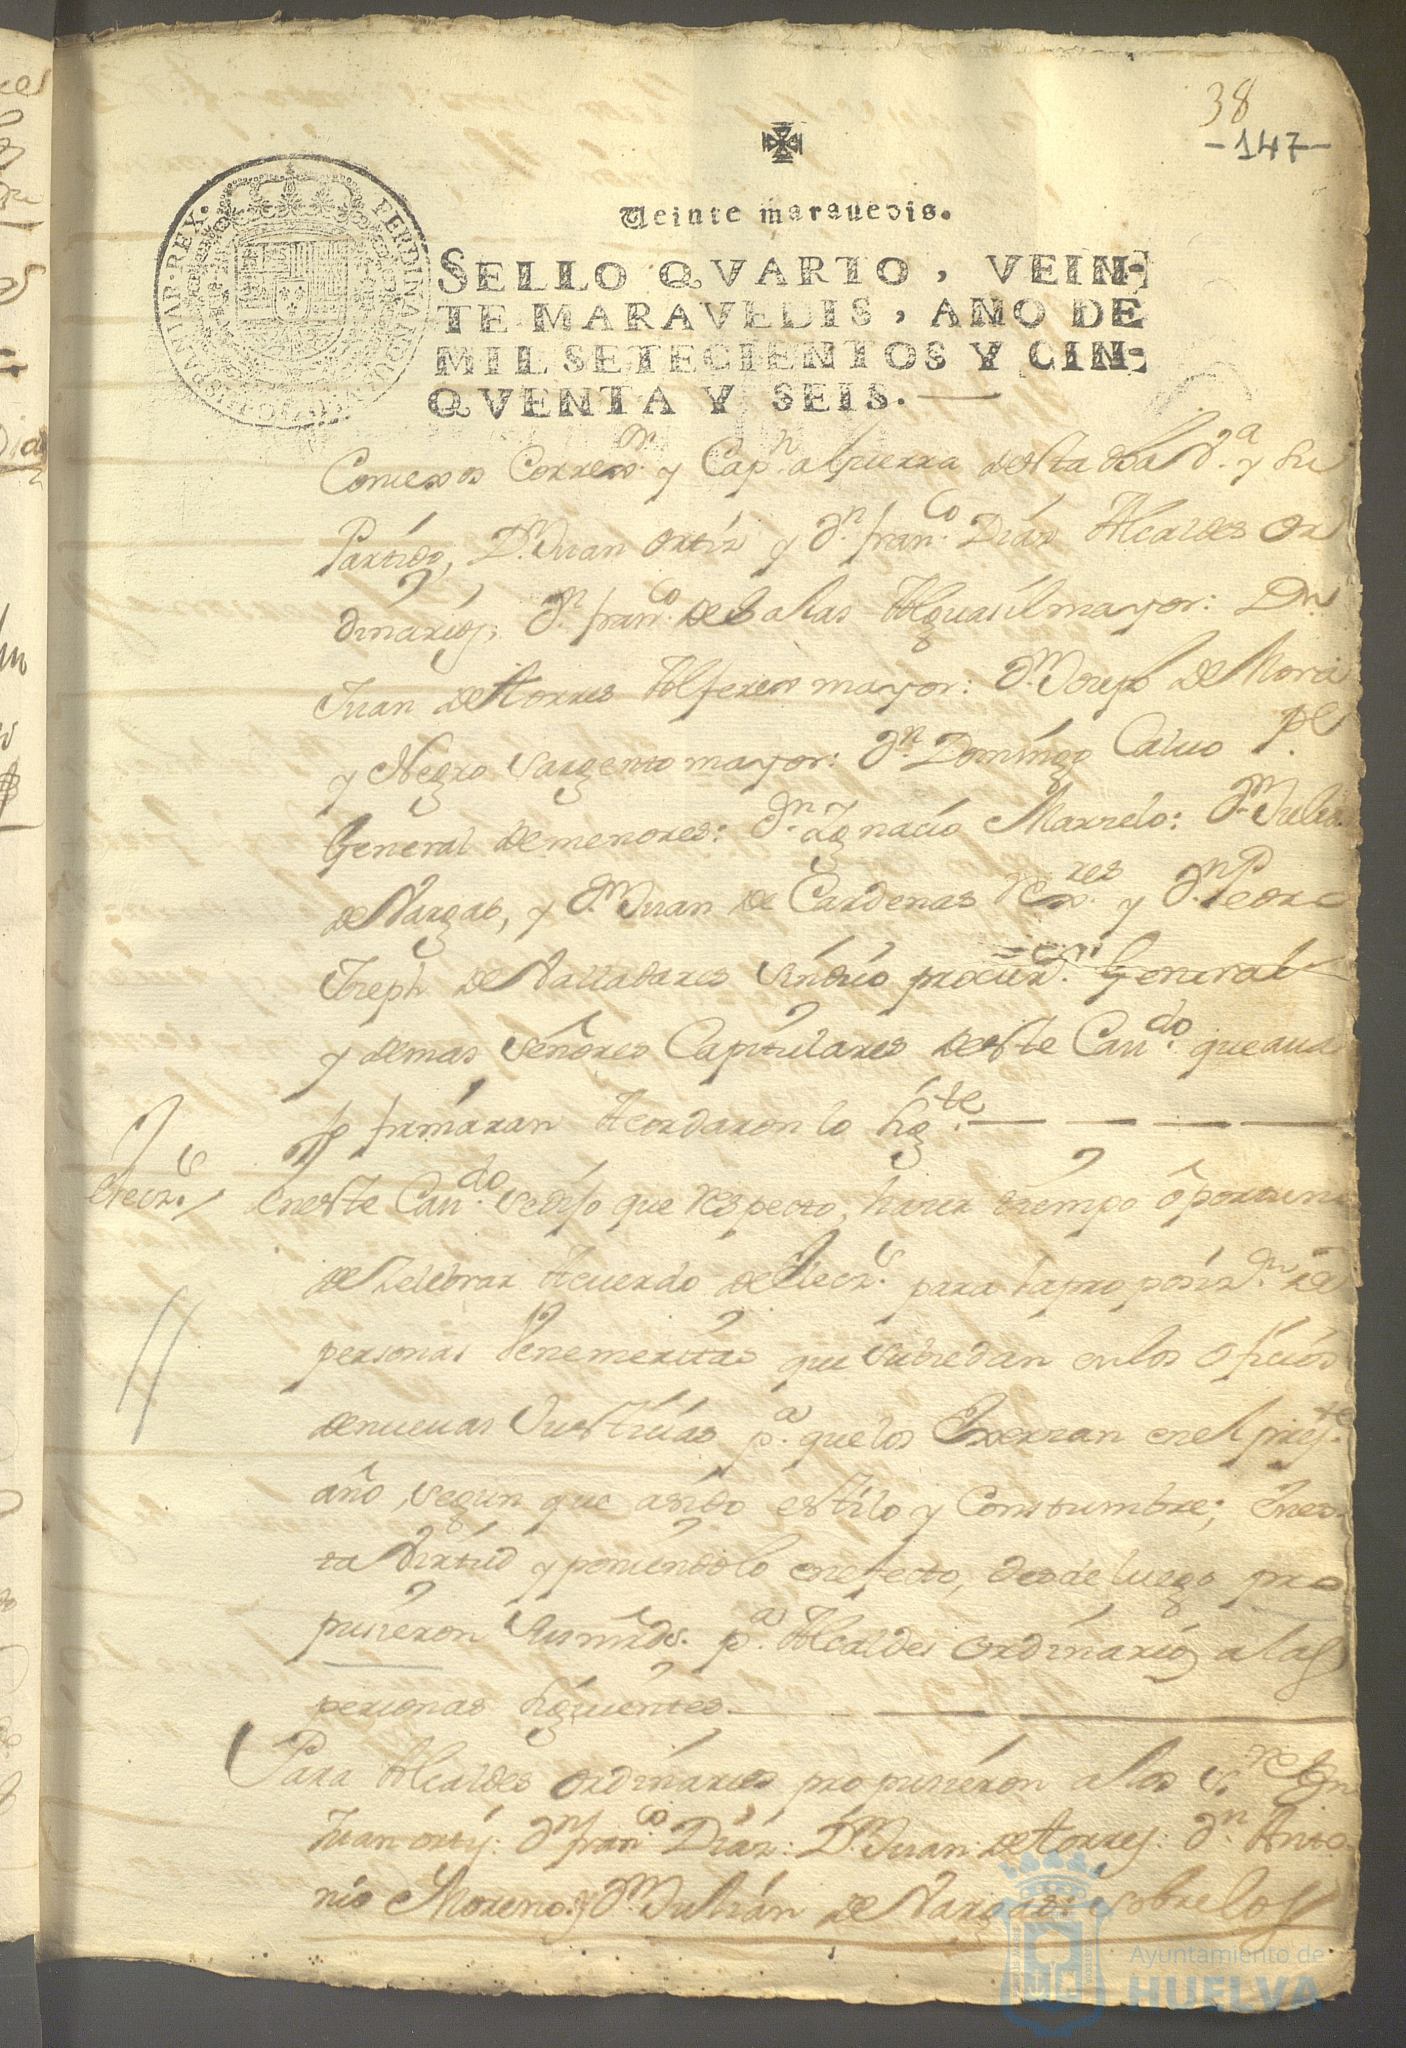 38
-147-
Veinte marauedis.
SELLO QVARTO, VEIN-
TE MARAVEDIS, AÑO DE
MIL SETECIENTOS Y CIN-
QVENTA Y SEIS.
FERDINANDUS HISPANIAR REX
Correxr. y Capn. a guerra desta dha Va. y su
Partido, Dn. Juan Ortiz y Dn. franco. Diaz Alcaldes or
dinarios, Dn. franco. de Salas Alguasil mayor: Dn.
Juan de torres Alferes mayor: Dn. Joseph de Mora
y Negro Sargento mayor: Dn. Domingo Calvo Pe
General de menores: Dn. Ygnacio Marselo: Dn. Julia
de Vargas, y Dn. Juan de Cardenas Rexres. y Dn. Pedro
Joseph de Valladares Sindico procur. General
y demas Señores Capitulares de este Caudo. que aua
jo firmaran Acordaron lo sigte.
Elecs.
En este Caudo. se dijo que respecto haver tiempo oportuno
de Zelebrar Acuerdo de Elecs. para la proposizn. de
personas Venemeritas que subcedan en los oficios
de nuevas Justicias pa. que los Exerzan en el preste.
año, segun que asido estilo y Constumbre; En es-
ta Virtud y poniendolo en efecto, desde luego pro
pusieron sus mrds. pa. Alcaldes ordinarios a las
personas siguientes.
Para Alcaldes ordinarios propusieron a los Sres. Dn
Juan ortis: Dn. franco. Diaz: Dn. Juan de torres: Dn. Anto-
nio Moreno: y Dn. Julian de Vargas: sobre los
Ayuntamiento de
HUELVA